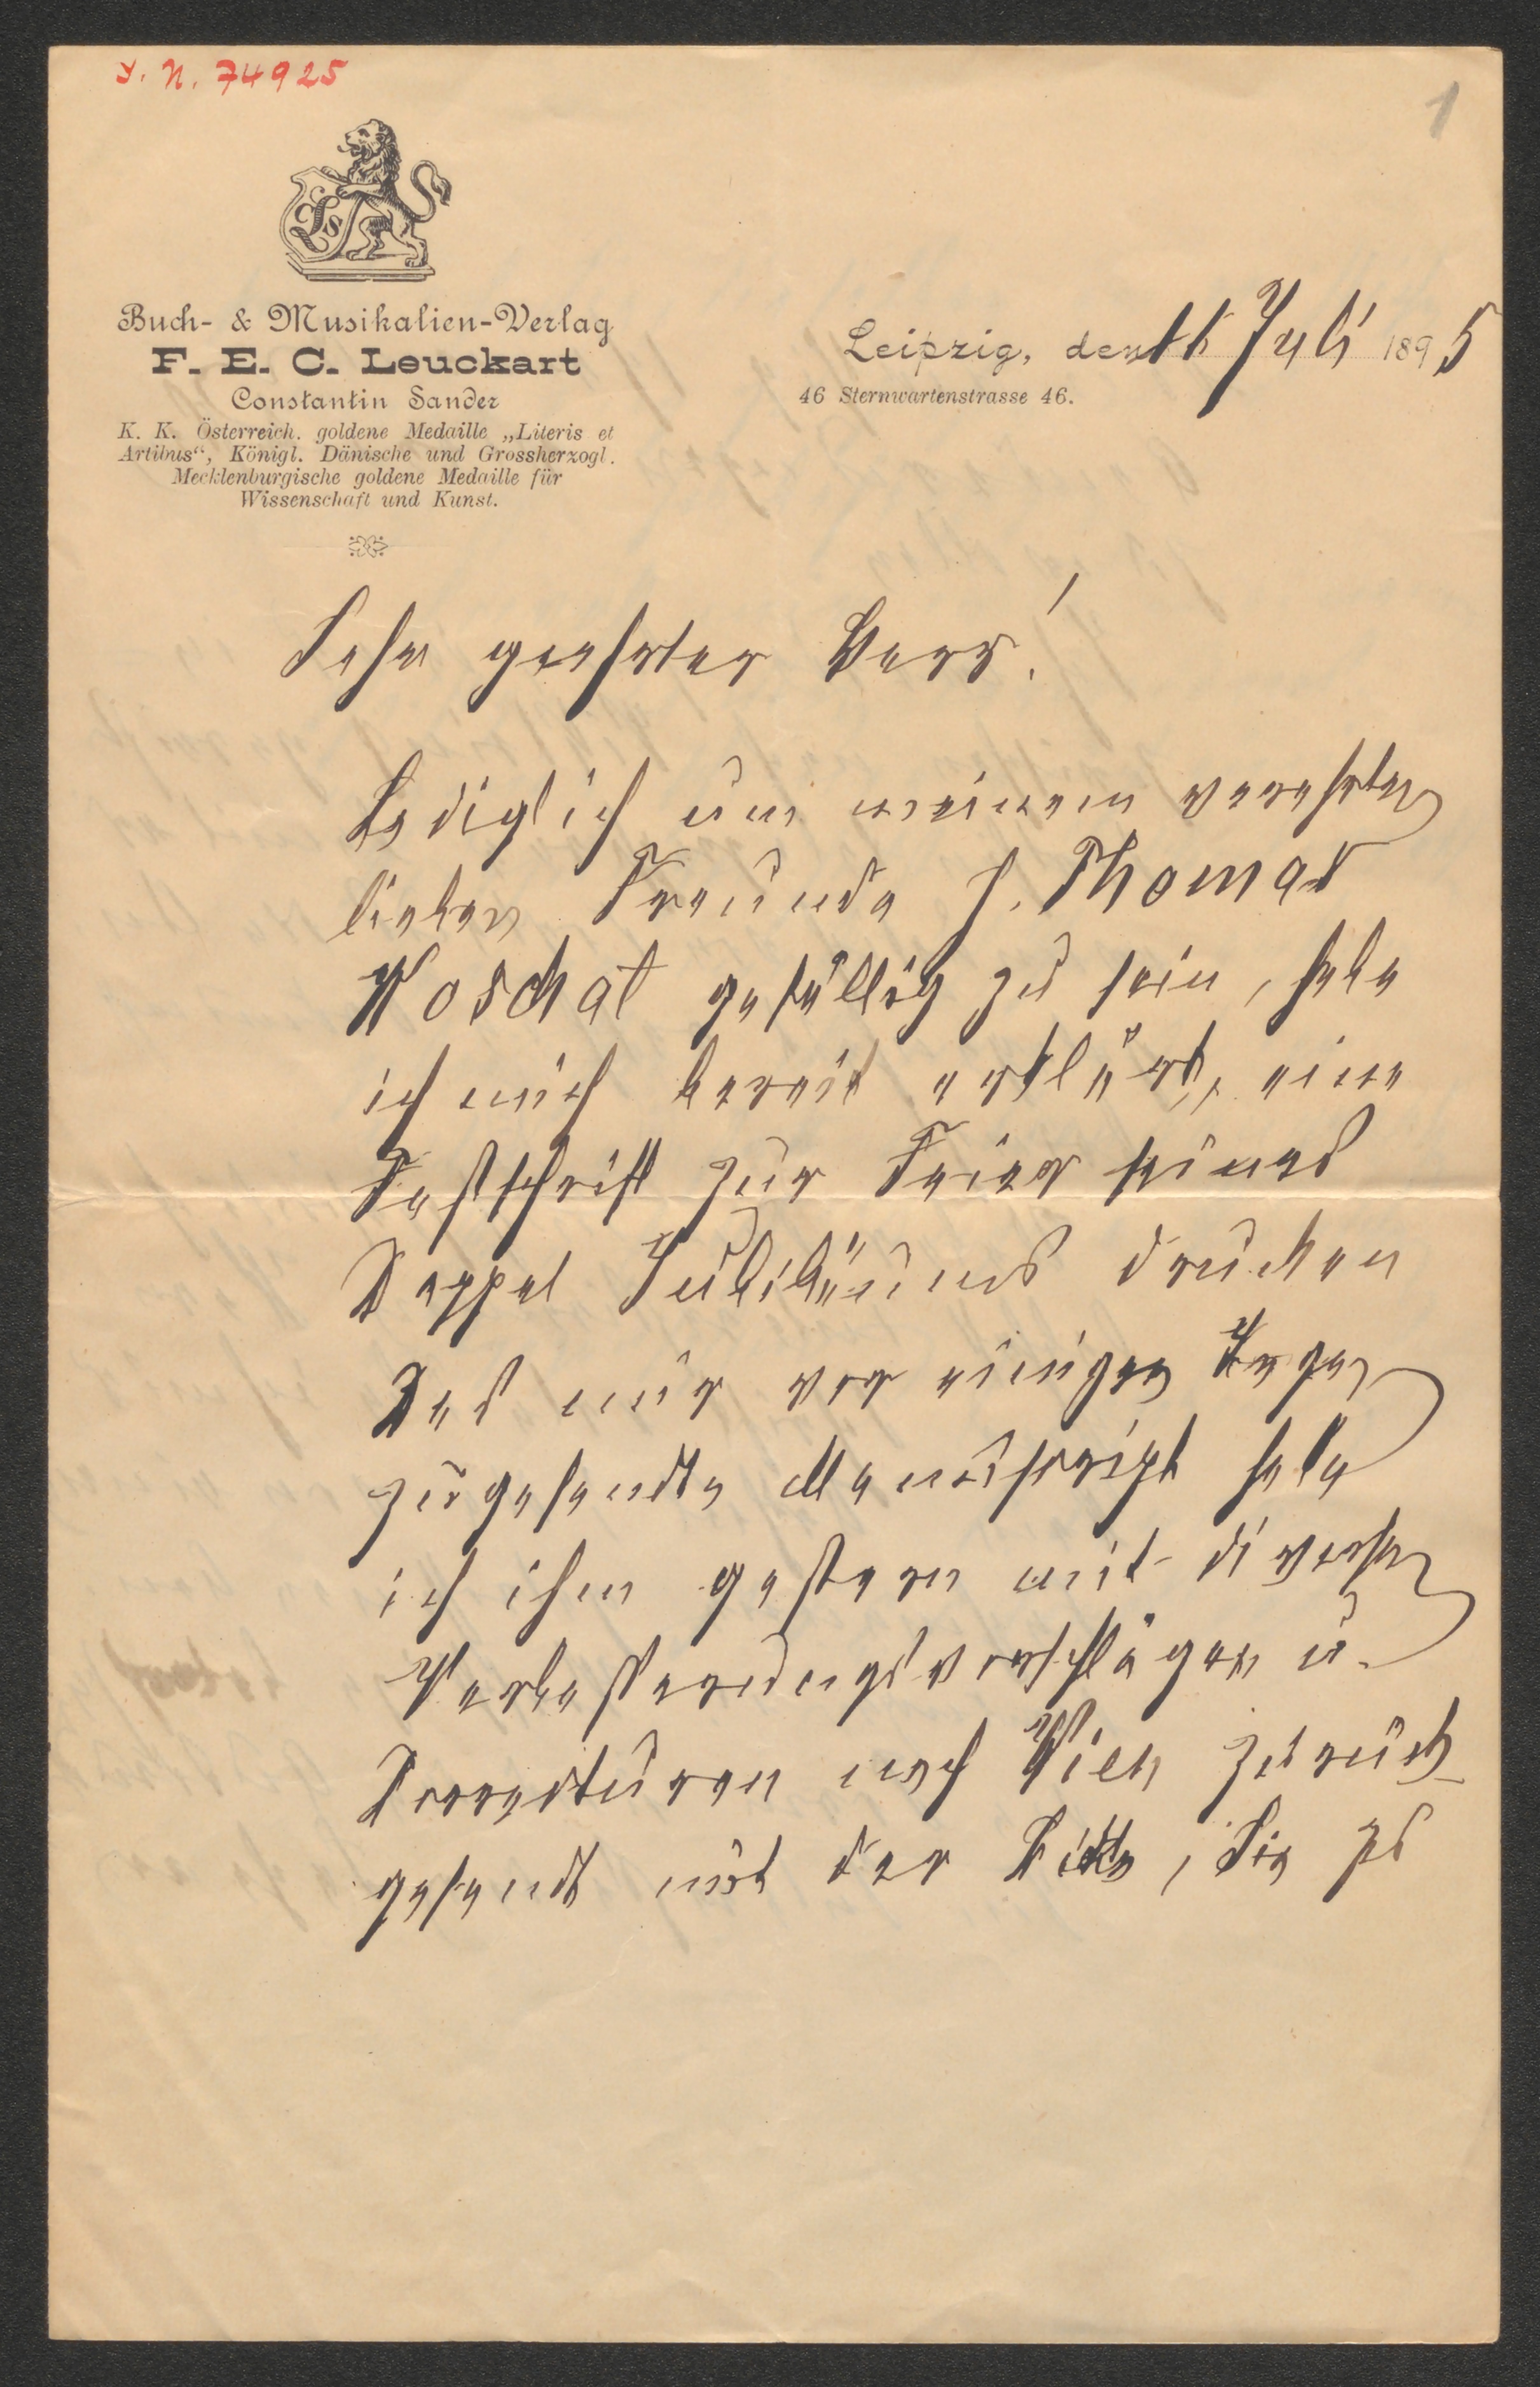 J. N. 74925
1
Ls
Buch- & Musikalien-Verlag
F. E. C. Leuckart
Constantin Sander
K. K. Österreich. goldene Medaille „Literis et
Artibus“, Königl. Dänische und Grossherzogl.
Mecklenburgische goldene Medaille für
Wissenschaft und Kunst.
Leipzig, den Juli 1895
46 Sternwartenstrasse 46.
Sehr geehrter Herr!
Lediglich um meinem verehrten
lieben Freunde H. Thomas
Koschat gefällig zu sein, habe
ich mich bereit erklärt, eine
Festschrift zur Feier seines
Doppel Jubiläums drucken
Das mir vor einigen Tagen
zugesandte Manuskript habe
ich ihm gestern mit diversen
Verbesserungsvorschlägen u.
Correcturen nach Wien zurück-
gesandt mit der Bitte, Sie zu